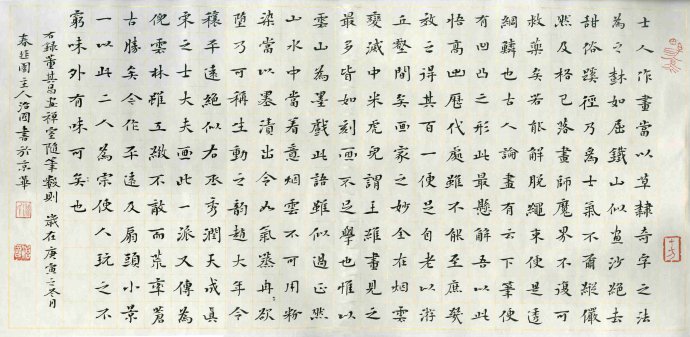 士人作畫當以草隸奇字之法
為之樹如屈鐵山似畫沙絕去
甜俗蹊徑乃為士氣不爾縱儼
然及格已落畫師魔界不復可
救藥矣若能解脫繩束便是透
網鱗也古人論畫有云下筆便
有凹凸之形此最懸解吾以此
悟高出歷代處雖不能至庶幾
效之得其百一便足自老以游
丘壑間矣画家之妙全在烟雲
變滅中米虎兒謂王維畫見之
最多皆如刻画不足學也惟以
雲山為墨戲此語雖似過正然
山水中當着意烟雲不可用粉
染當以墨漬出令如氣蒸冉冉欲
墮乃可稱生動之韻趙大年令
穰平遠絕似右丞秀潤天成真
宋之士大夫画此一派又傳為
倪雲林雖工緻不敵而荒率蒼
古勝矣今作平遠及扇頭小景
一以此二人為宗使人玩之不
窮味外有味可矣也
右錄董其昌畫禪室隨筆數則 歲在庚寅之冬月
園主人治國書於京華